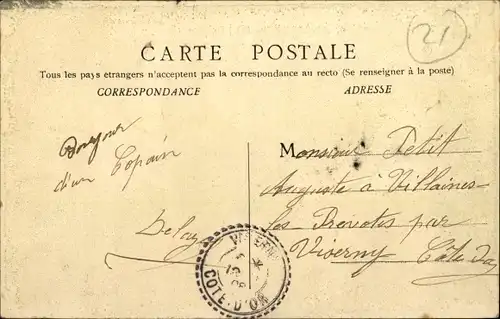 21
CARTE POSTALE
Tous les pays etrangers n'acceptent pas la correspondance au recto (Se renseigner à la poste)
CORRESPONDANCE
ADRESSE
Bonjour
d'un Copain
Monsieur Petit
Auguste à Villaines-
les Prevotes par
Viserny Côte d'Or
COTE-D'OR